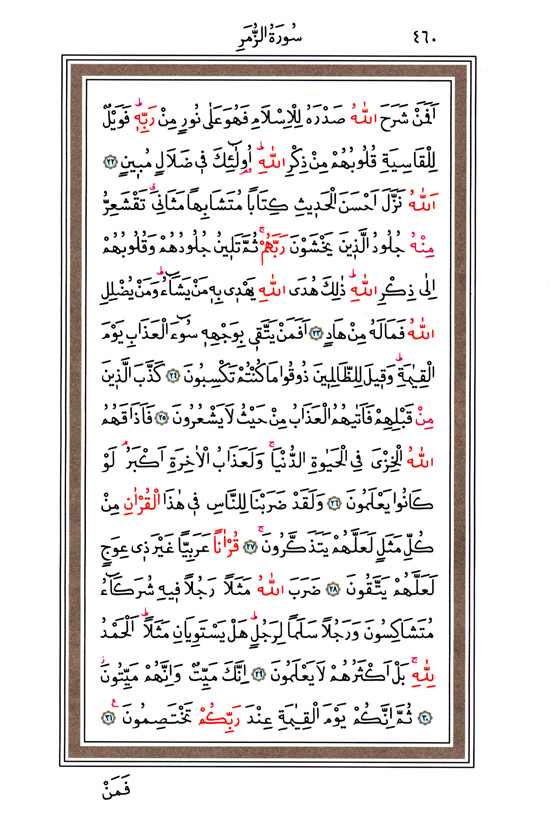 سُورَةُ الزُّمَرِ ٤٦٠
اَفَمَنْ شَرَحَ اللّٰهُ صَدْرَهُ لِلْاِسْلَامِ فَهُوَ عَلٰى نُورٍ مِنْ رَبِّهٖۜ فَوَيْلٌ
لِلْقَاسِيَةِ قُلُوبُهُمْ مِنْ ذِكْرِ اللّٰهِۜ اُو۬لٰٓئِكَ فٖي ضَلَالٍ مُبٖينٍ ﴿٢٢﴾
اَللّٰهُ نَزَّلَ اَحْسَنَ الْحَدٖيثِ كِتَابًا مُتَشَابِهًا مَثَانِيَۗ تَقْشَعِرُّ
مِنْهُ جُلُودُ الَّذٖينَ يَخْشَوْنَ رَبَّهُمْۚ ثُمَّ تَلٖينُ جُلُودُهُمْ وَقُلُوبُهُمْ
اِلٰى ذِكْرِ اللّٰهِۜ ذٰلِكَ هُدَى اللّٰهِ يَهْدٖي بِهٖ مَنْ يَشَٓاءُۜ وَمَنْ يُضْلِلِ
اللّٰهُ فَمَا لَهُ مِنْ هَادٍ ﴿٢٣﴾ اَفَمَنْ يَتَّقٖي بِوَجْهِهٖ سُٓوءَ الْعَذَابِ يَوْمَ
الْقِيٰمَةِۜ وَقٖيلَ لِلظَّالِمٖينَ ذُوقُوا مَا كُنْتُمْ تَكْسِبُونَ ﴿٢٤﴾ كَذَّبَ الَّذٖينَ
مِنْ قَبْلِهِمْ فَاَتٰيهُمُ الْعَذَابُ مِنْ حَيْثُ لَا يَشْعُرُونَ ﴿٢٥﴾ فَاَذَاقَهُمُ
اللّٰهُ الْخِزْيَ فِي الْحَيٰوةِ الدُّنْيَاۚ وَلَعَذَابُ الْاٰخِرَةِ اَكْبَرُۢ لَوْ
كَانُوا يَعْلَمُونَ ﴿٢٦﴾ وَلَقَدْ ضَرَبْنَا لِلنَّاسِ فٖي هٰذَا الْقُرْاٰنِ مِنْ
كُلِّ مَثَلٍ لَعَلَّهُمْ يَتَذَكَّرُونَۚ ﴿٢٧﴾ قُرْاٰنًا عَرَبِيًّا غَيْرَ ذٖي عِوَجٍ
لَعَلَّهُمْ يَتَّقُونَ ﴿٢٨﴾ ضَرَبَ اللّٰهُ مَثَلًا رَجُلًا فٖيهِ شُرَكَٓاءُ
مُتَشَاكِسُونَ وَرَجُلًا سَلَمًا لِرَجُلٍۜ هَلْ يَسْتَوِيَانِ مَثَلًاۜ اَلْحَمْدُ
لِلّٰهِۚ بَلْ اَكْثَرُهُمْ لَا يَعْلَمُونَ ﴿٢٩﴾ اِنَّكَ مَيِّتٌ وَاِنَّهُمْ مَيِّتُونَۘ
﴿٣٠﴾ ثُمَّ اِنَّكُمْ يَوْمَ الْقِيٰمَةِ عِنْدَ رَبِّكُمْ تَخْتَصِمُونَ۟ ﴿٣١﴾
فَمَنْ